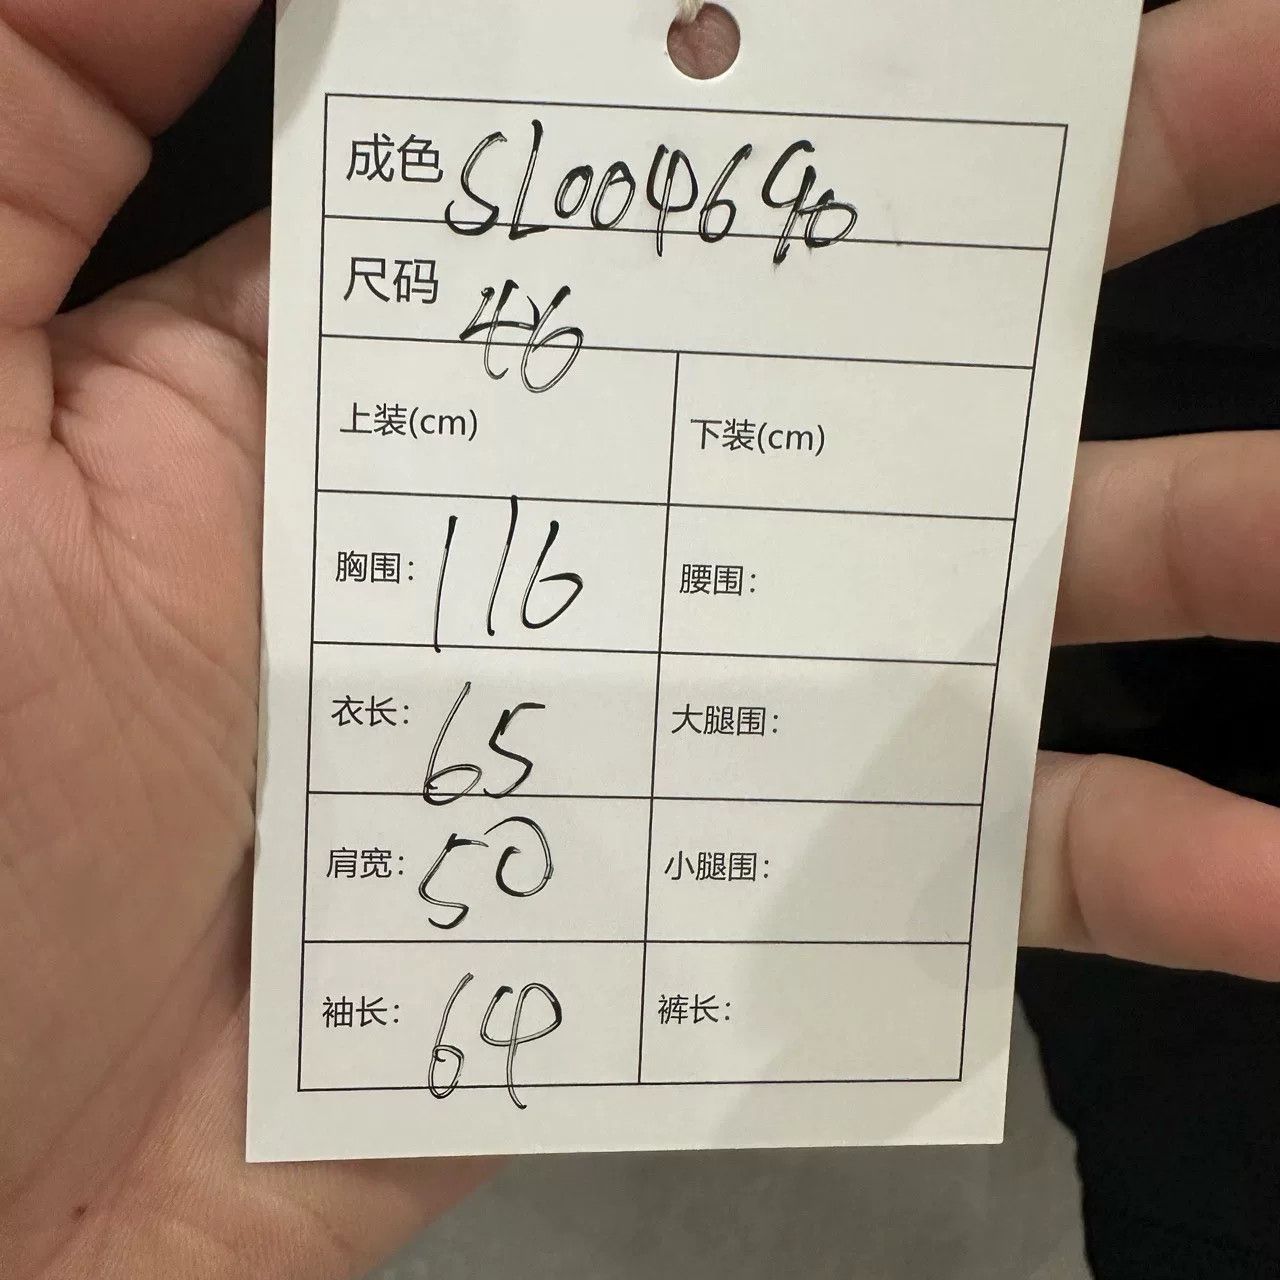 成色 SL004690
尺码 46
上装(cm) 下装(cm)
胸围: 116 腰围:
衣长: 65 大腿围:
肩宽: 50 小腿围:
袖长: 64 裤长: